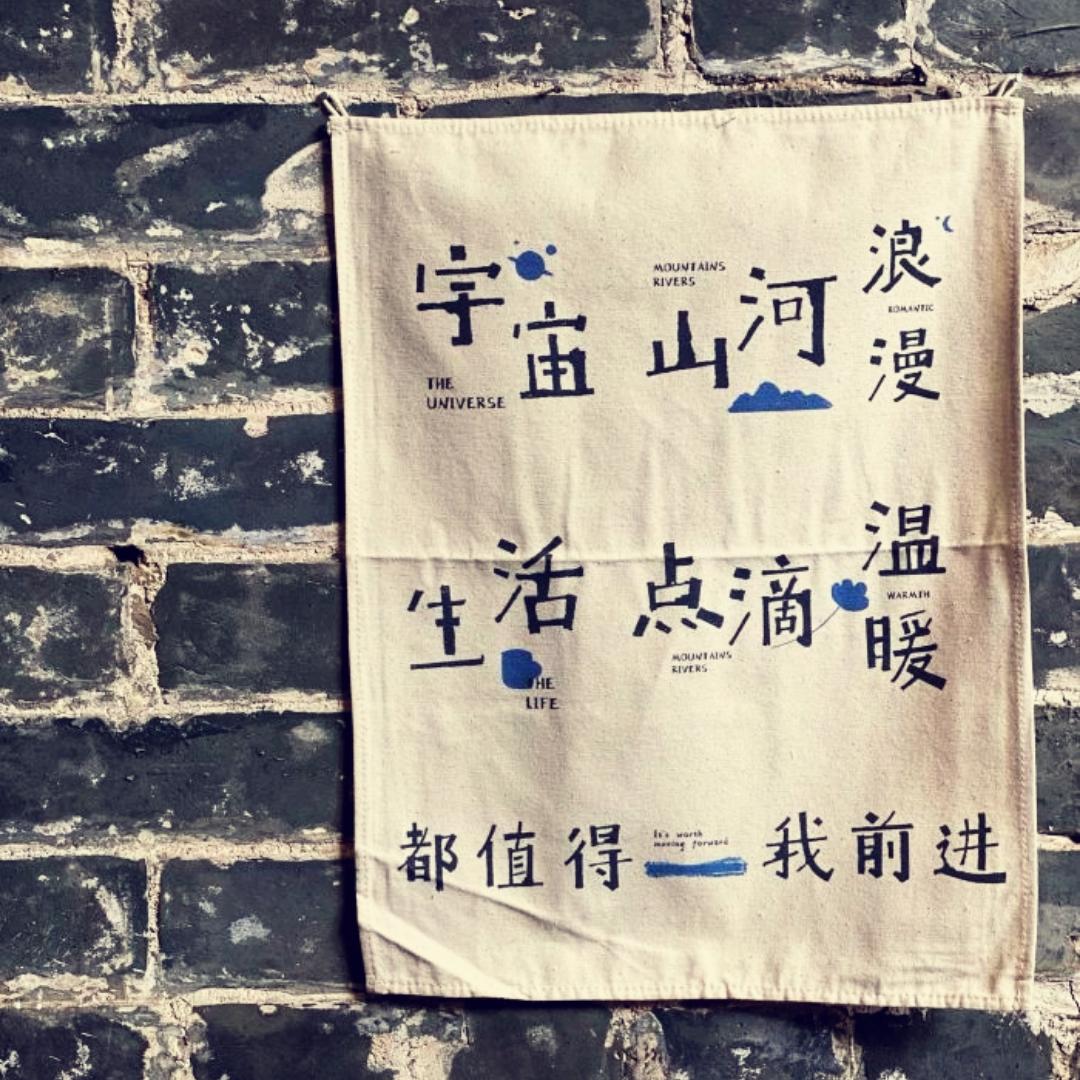 宇宙
THE
UNIVERSE
MOUNTAINS
RIVERS
山河
浪漫
ROMANTIC
生活
THE
LIFE
点滴
MOUNTAINS
RIVERS
温暖
WARMTH
都值得
It's worth
moving forward
我前进